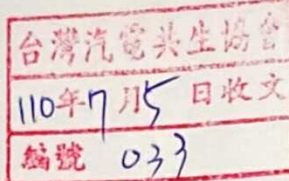 台灣汽電共生協會
110年7月5日收文
編號 033